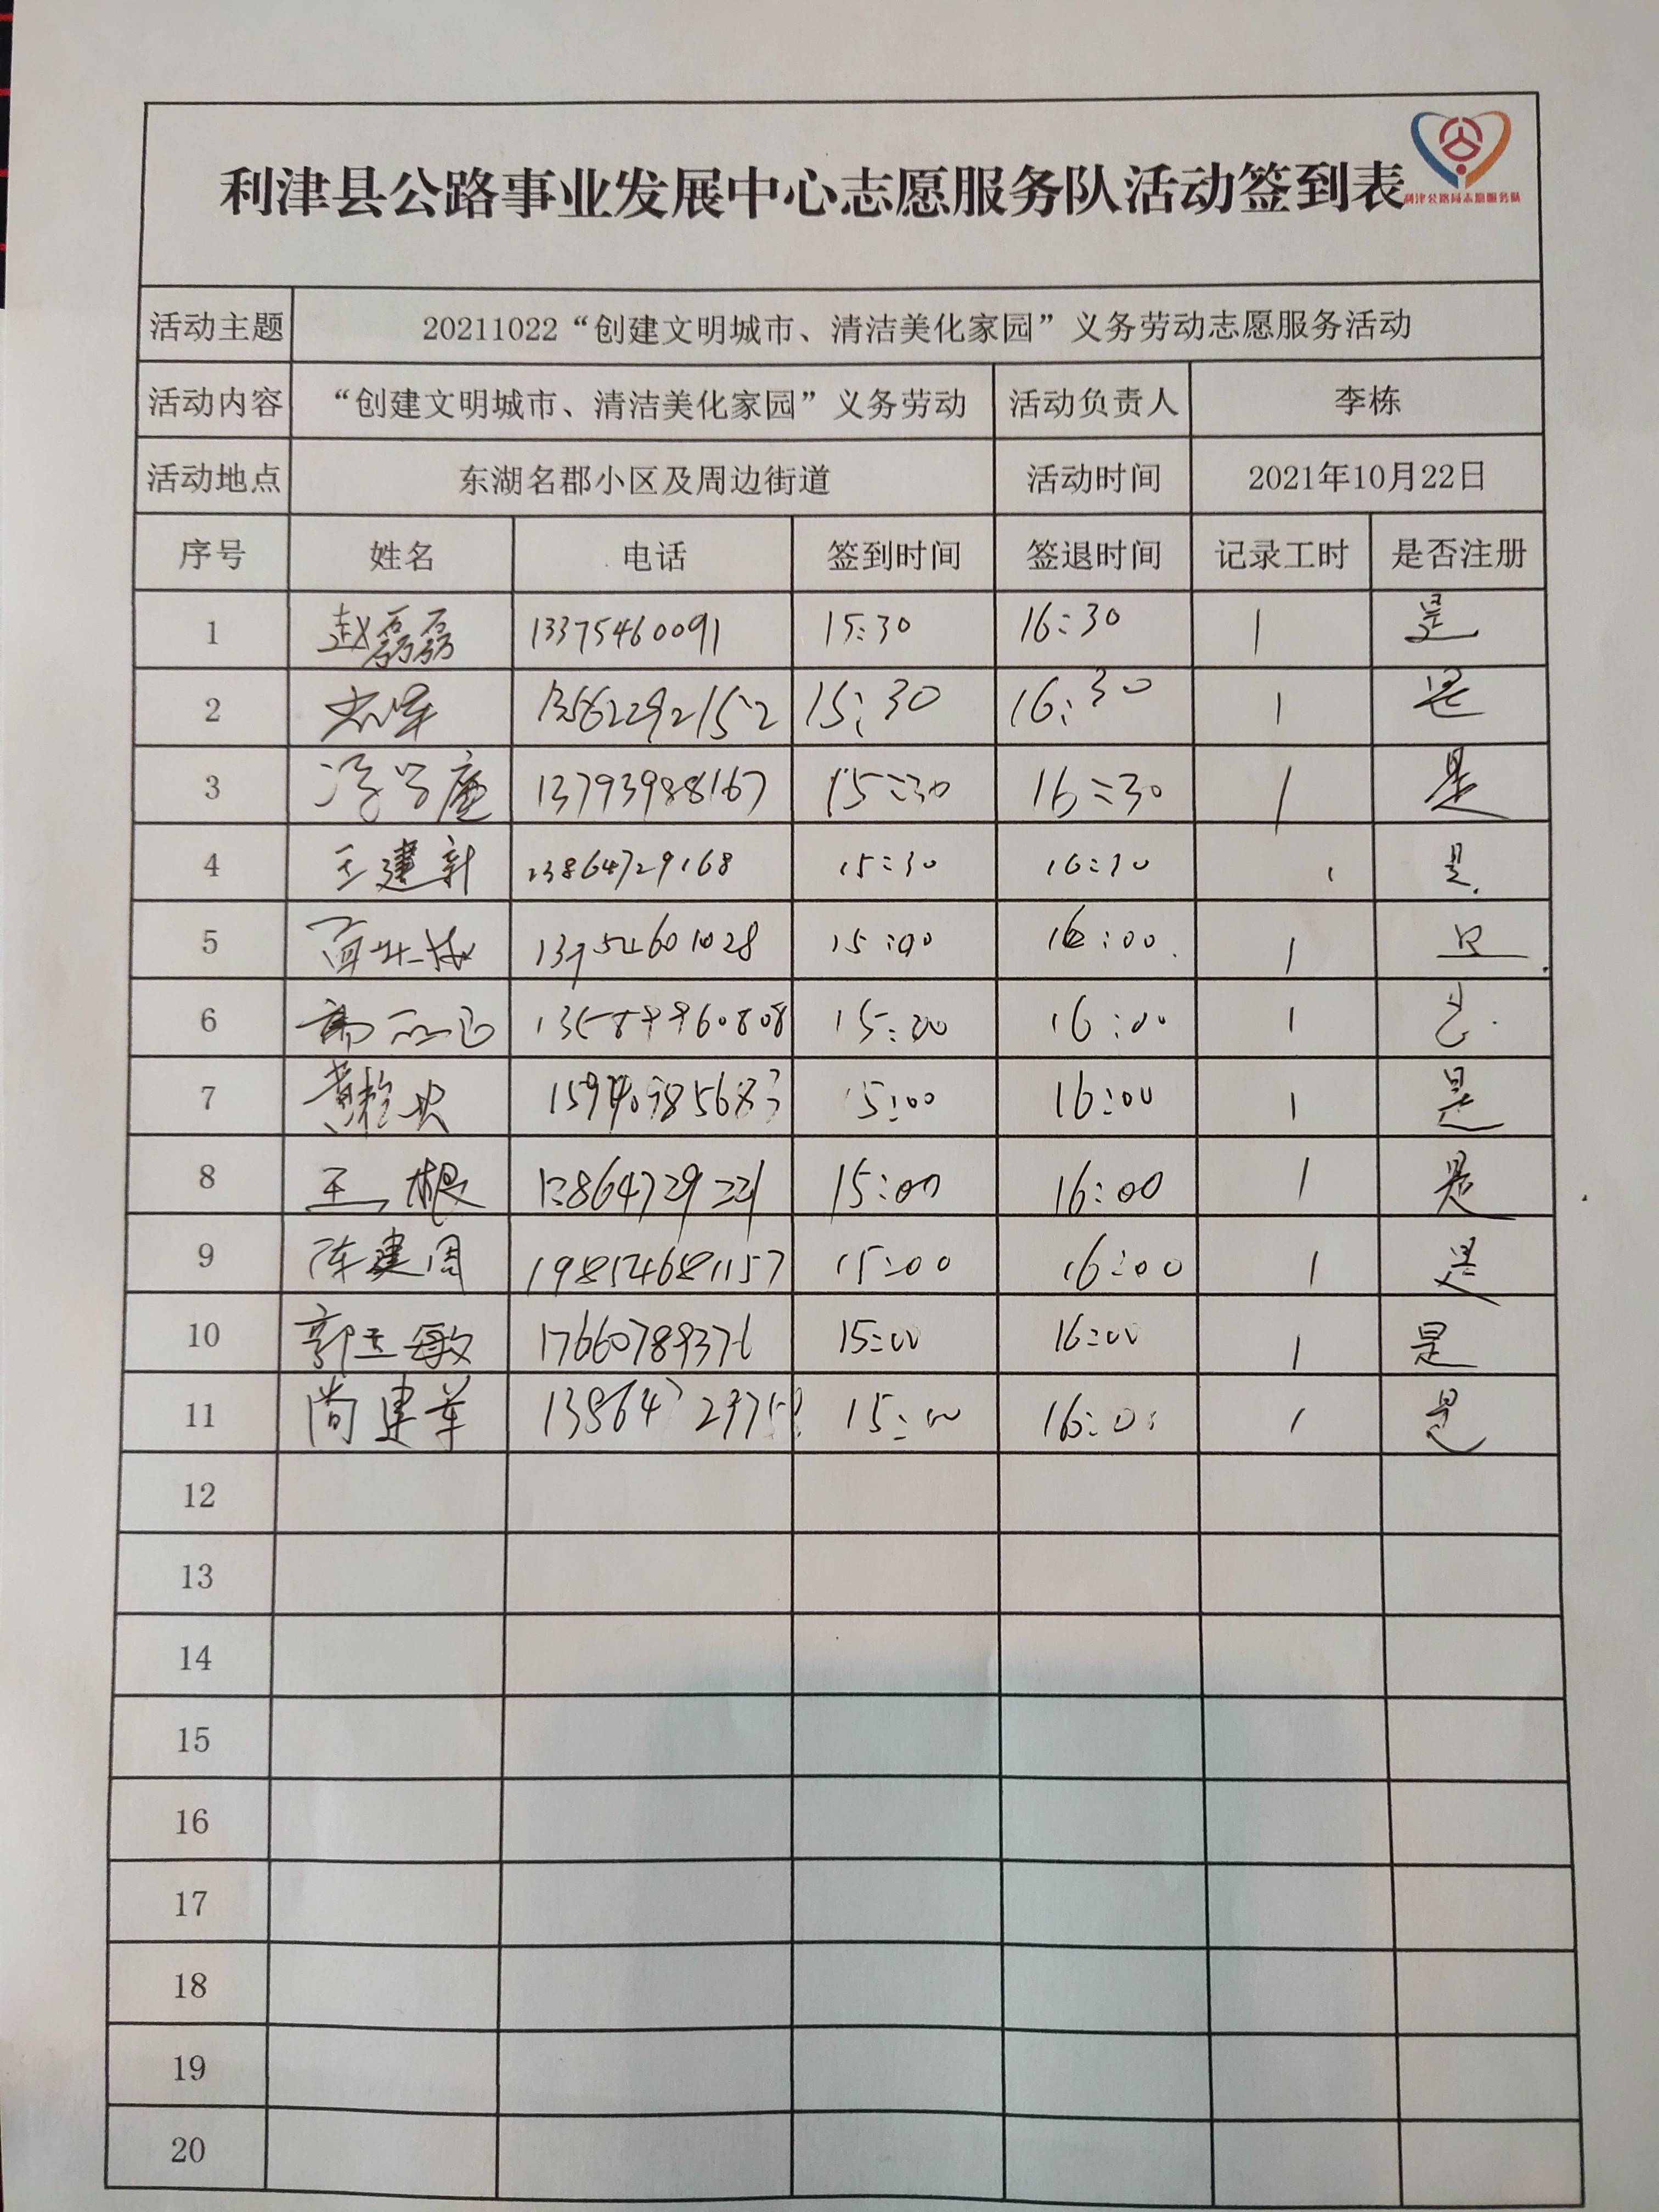 利津县公路事业发展中心志愿服务队活动签到表
利津公路局志愿服务队
活动主题 20211022“创建文明城市、清洁美化家园”义务劳动志愿服务活动
活动内容 “创建文明城市、清洁美化家园”义务劳动 活动负责人 李栋
活动地点 东湖名郡小区及周边街道 活动时间 2021年10月22日
序号 姓名 电话 签到时间 签退时间 记录工时 是否注册
1 赵磊磊 13375460091 15:30 16:30 1 是
2 13562292152 15:30 16:30 1 是
3 13793988167 15:30 16:30 1 是
4 王建新 13864729168 15:30 16:30 1 是
5 15:00 16:00 1 是
6 15:00 16:00 1 是
7 15:00 16:00 1 是
8 13864729221 15:00 16:00 1 是
9 陈建周 15:00 16:00 1 是
10 郭玉敏 17660789376 15:00 16:00 1 是
11 尚建华 15:00 16:00 1 是
12
13
14
15
16
17
18
19
20